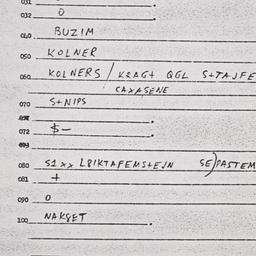 031
032 0
040 BUZIM
050 KOLNER
060 KOLNERS / K&AG+ QGL S+TAJFE
CAXASENE
070 S+NIPS
072 $-
080 S1 xx L8IKTAFEMS+EJN SE)PASTEM
081 +
090 0
100 NAKSET